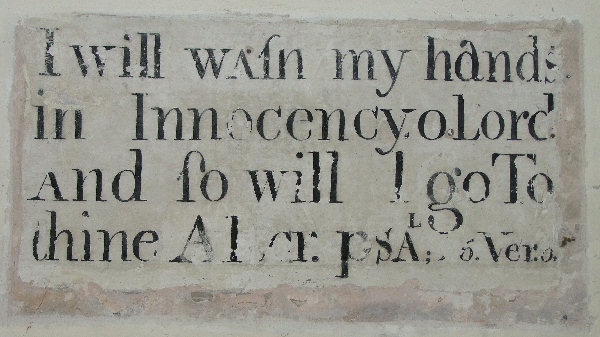 I will waſh my hands
in Innocency.o.Lord
And ſo will I go To
thine Alter. psAL; Ver: